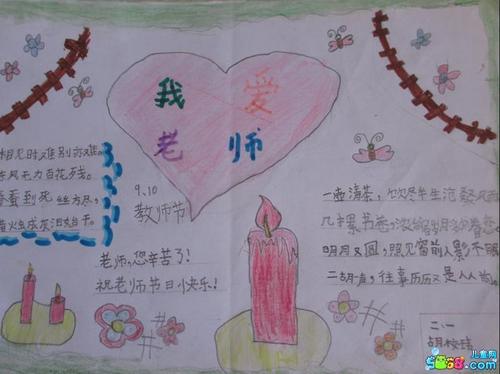 我爱
老师
相见时难别亦难。
东风无力百花残。
春蚕到死丝方尽,
蜡炬成灰泪始干。
9.10
教师节
老师,您辛苦了!
祝老师节日快乐!
一壶清茶,饮尽半生沧桑风
书卷,浓缩
明月又圆,照见窗前人影不眠
二胡声,往事历历又是人
二.一
胡
儿童网
5068.com